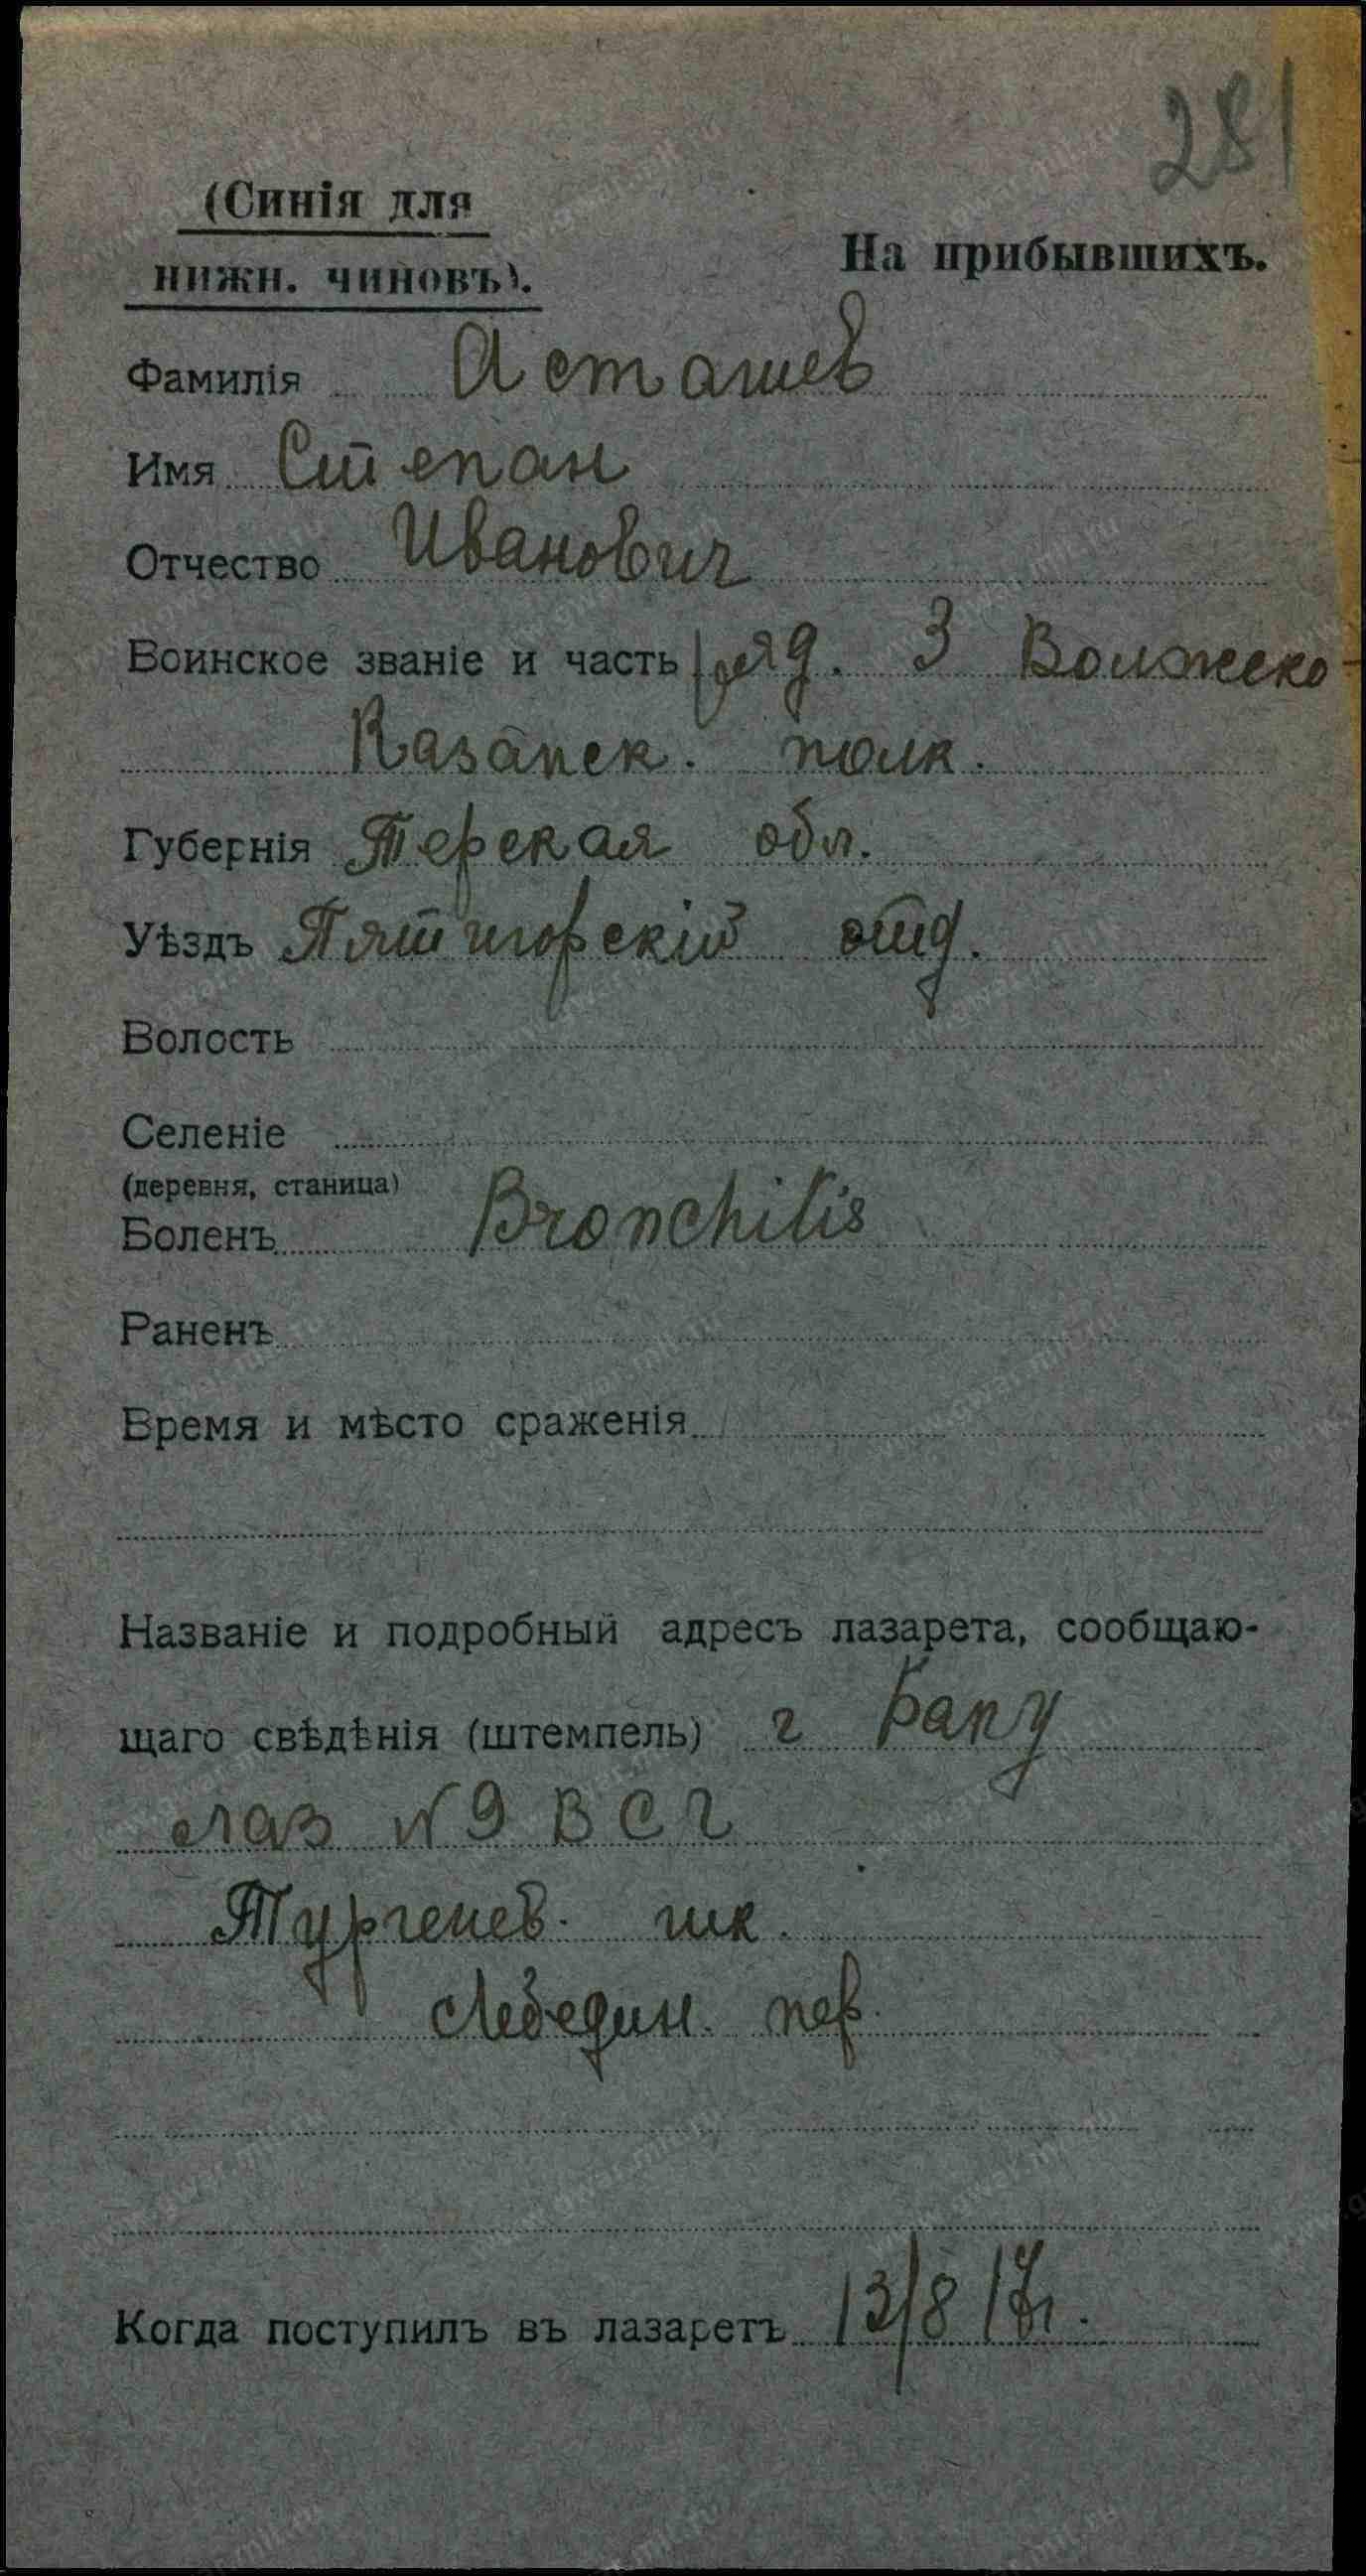 281
(Синія для
нижн. чиновъ).
На прибывшихъ.
Фамилія Асташев
Имя Степан
Отчество Иванович
Воинское званіе и часть ряд. 3 Волжско-
Казанск. полк.
Губернія Терская обл.
Уѣздъ Пятигорскій отд.
Волость
Селеніе
(деревня, станица)
Боленъ Bronchitis
Раненъ
Время и мѣсто сраженія
Названіе и подробный адресъ лазарета, сообщаю-
щаго свѣдѣнія (штемпель) г Баку
лаз N 9 В С Г
Тургенев. шк.
Лебедин. пер.
Когда поступилъ въ лазаретъ 13/8 17г.